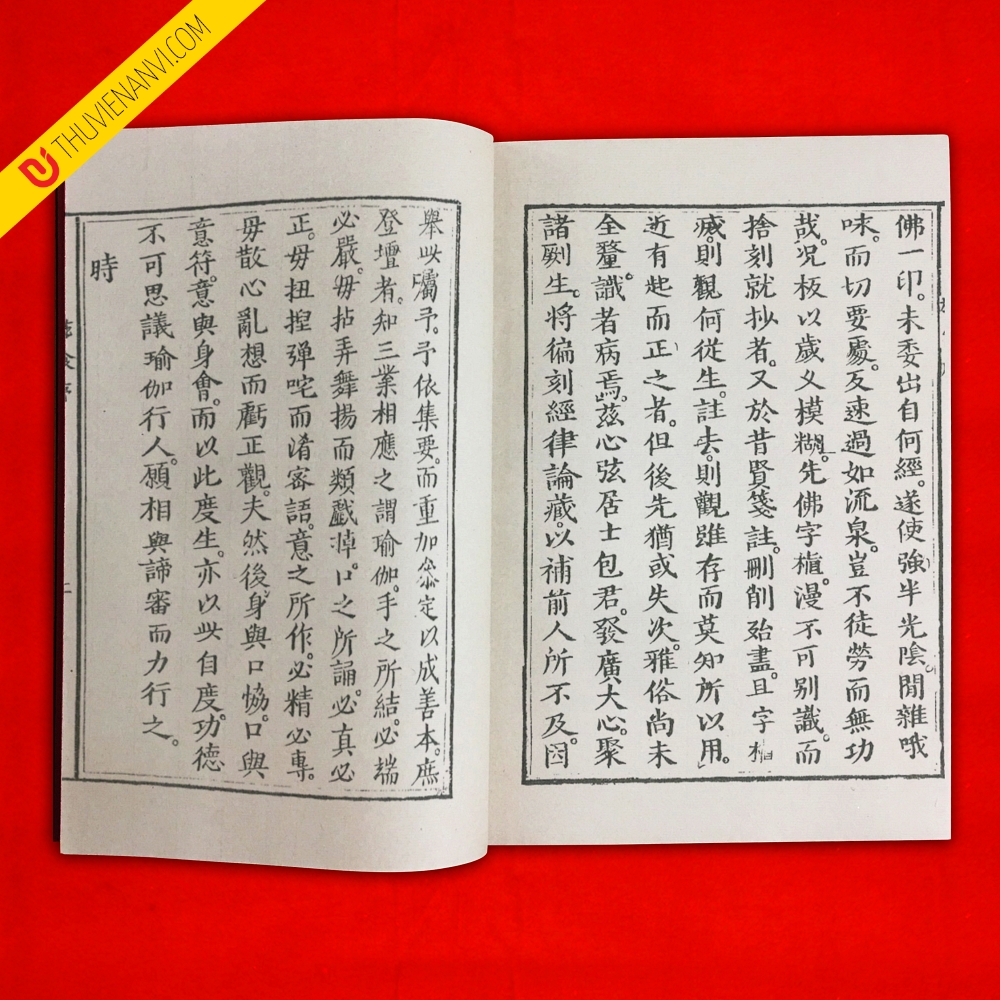 THUVIENANVI.COM
佛一印。未委出自何經。遂使強半光陰。閒雜哦
味。而切要處。反速過如流泉。豈不徒勞而無功
哉。况板以歲乂模糊。先佛字樝漫不可别識。而
捨刻就抄者。又於昔賢箋註。刪削殆盡。且字
𢧐。則觀何從生。註去。則觀雖存而莫知所以用。
近有起而正之者。但後先猶或失次。雅俗尚未
全釐。識者病焉。茲心弦居士包君。發廣大心。聚
諸剟生。將徧刻經律論藏。以補前人所不及。因
舉此囑予。予依集要。而重加叅定以成善本。庶
登壇者。知三業相應之謂瑜伽。手之所結。必端
必嚴。毋拈弄舞揚而類戲掉。口之所誦。必真必
正。毋扭揑弹咤而淆宻語。意之所作。必精必專。
毋散心亂想而虧正觀。夫然後。身與口恊。口與
意符。意與身會。而以此度生。亦以此自度。功德
不可思議瑜伽行人。願相與諦審而力行之。
時